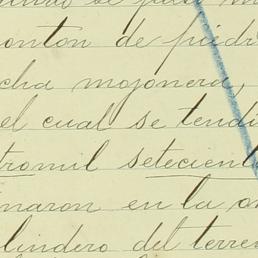 se puso
onton de piedr
cha mojonera,
el cual se tendi
tromil setecient
naron en la o
lindero del terre